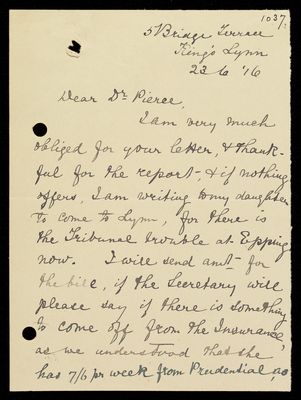 1037.
5 Bridge Terrace
King's Lynn
23/6/'16
Dear Dr Pierce,
I am very much
obliged for your letter, & thank-
ful for the report - & if nothing
offers, I am writing to my daughter
to come to Lynn, for there is
the Tribunal trouble at Epping
now. I will send amt for
the bill, if the Secretary will
please say if there is something
to come off from the Insurance
as we understood that she
has 7/6 pr week from Prudential, as